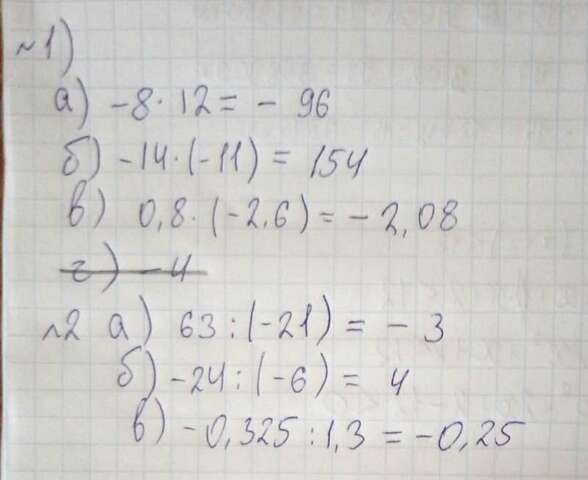 №1)
а) -8 · 12 = - 96
б) -14 · (-11) = 154
в) 0,8 · (-2,6) = - 2,08
г) -4
№2 а) 63 : (-21) = - 3
б) -24 : (-6) = 4
в) -0,325 : 1,3 = -0,25